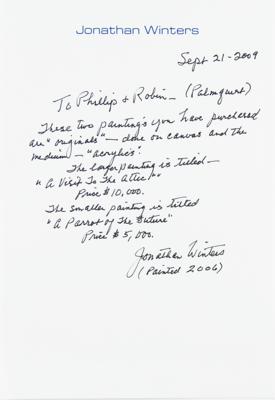 Jonathan Winters
Sept 21-2009
To Phillip & Robin - (Palmquist)
These two painting's you have purchased
are "originals" - done on canvas and the
medium - "acrylics".
The larger painting is titled -
"A Visit To The Attic!"
Price $10,000.
The smaller painting is titled
"A Parrot of The Future"
Price $5,000.
Jonathan Winters
(Painted 2006)